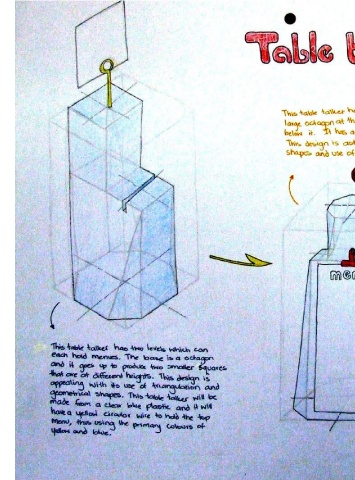 Table
This table talker ha
large octagon at th
below it. It has a
This design is
shapes and use of
men
This table talker has two levels which can
each hold menues. The base is a octagon
and it goes up to produce two smaller squares
that are at different heights. This design is
appealing with its use of triangulation and
geometrical shapes. This table talker will be
made from a clear blue plastic and it will
have a yellow circular wire to hold the top
menu, thus using the primary colours of
yellow and blue.